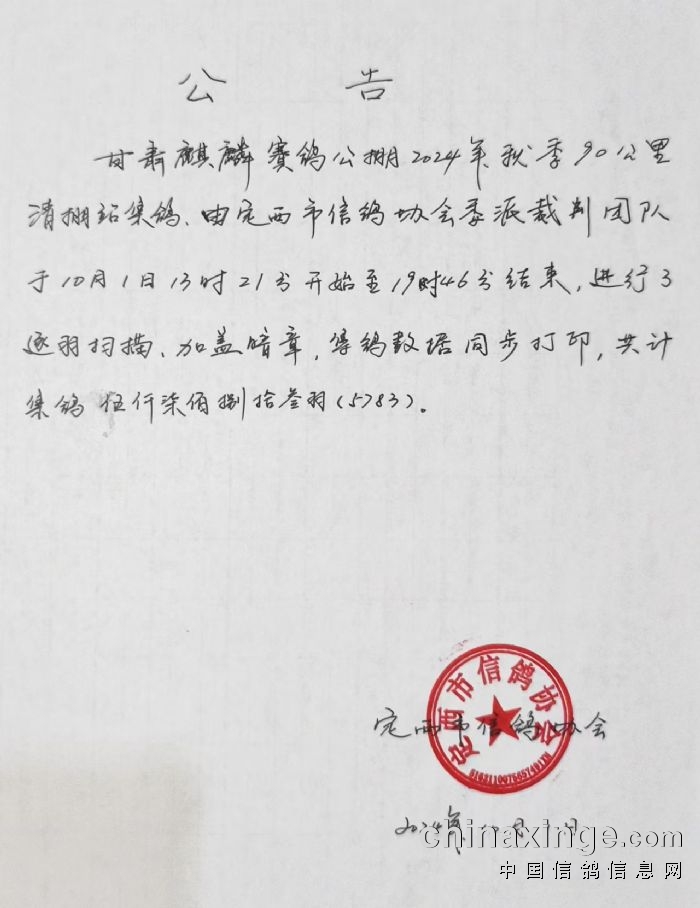 公 告
甘肃麒麟赛鸽公棚2024年秋季90公里
清棚站集鸽、由定西市信鸽协会委派裁判团队
于10月1日13时21分开始至19时46分结束，进行了
逐羽扫描、加盖暗章，集鸽数据同步打印，共计
集鸽伍仟柒佰捌拾叁羽（5783）。
定西市信鸽协会
定西市信鸽协会
2024年10月 日
chinaxinge.com
中国信鸽信息网